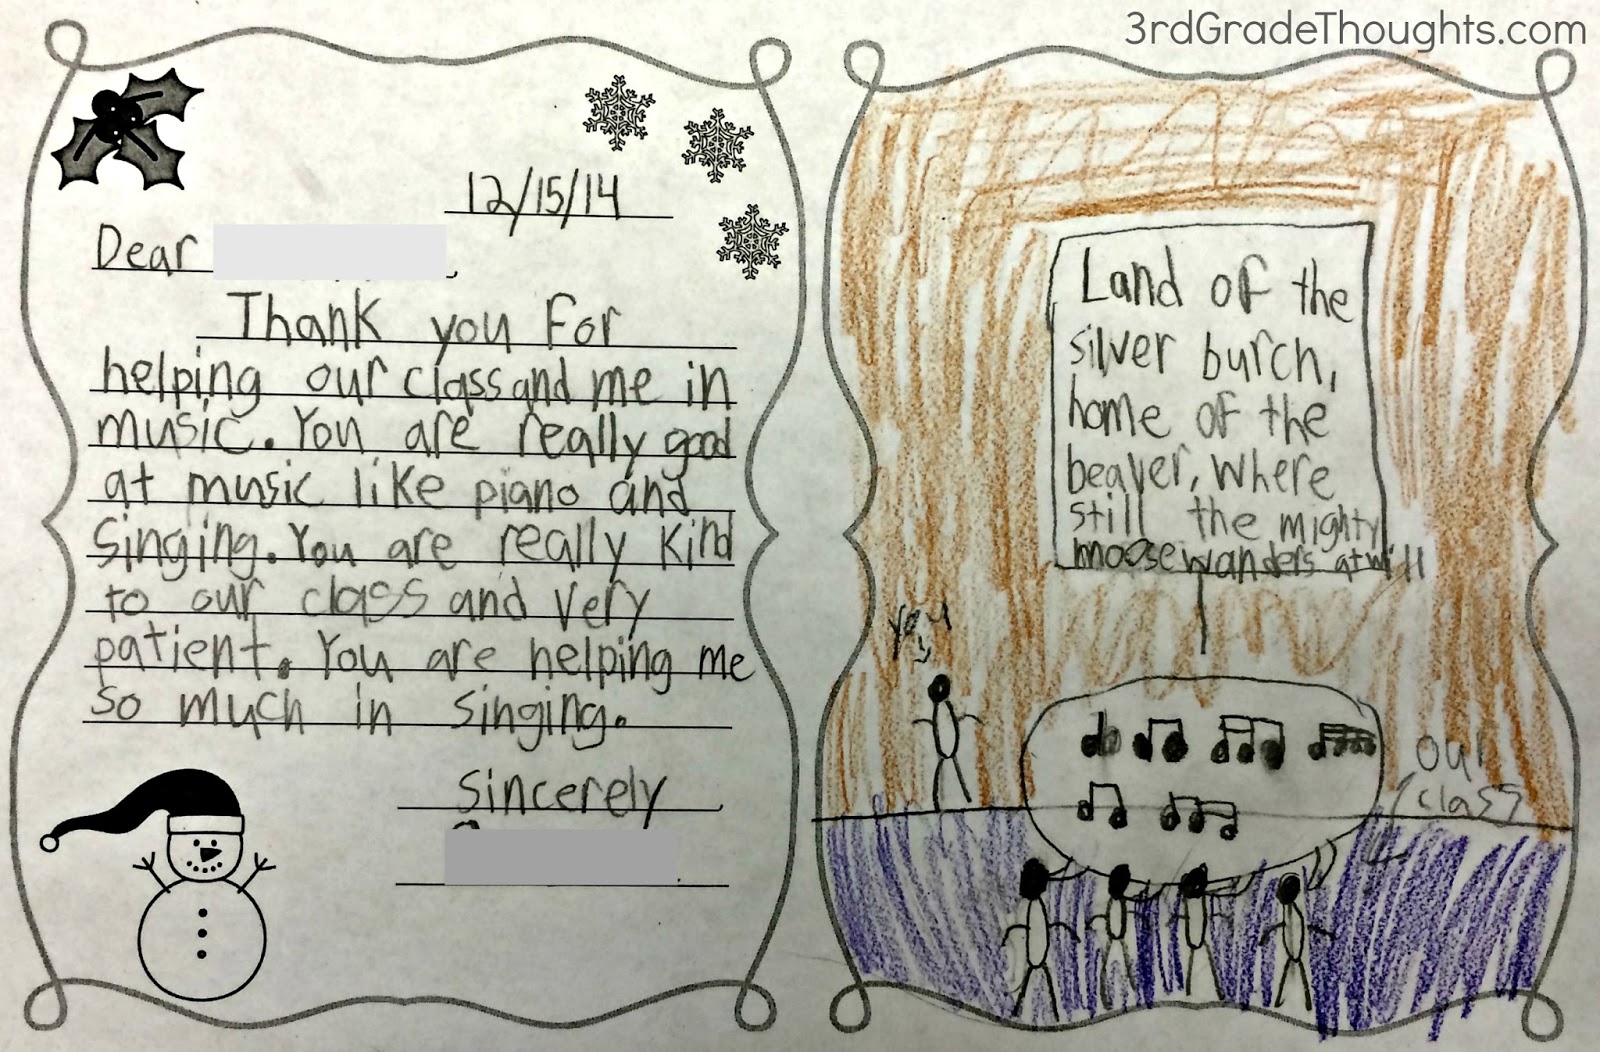 3rdGradeThoughts.com
12/15/14
Dear ,
Thank you For
helping our class and me in
music. You are really good
at music like piano and
singing. You are really kind
to our class and very
patient. You are helping me
so much in singing.
Sincerely,
Land of the
silver burch,
home of the
beaver, where
still the mighty
moose wanders at will
you
our
class